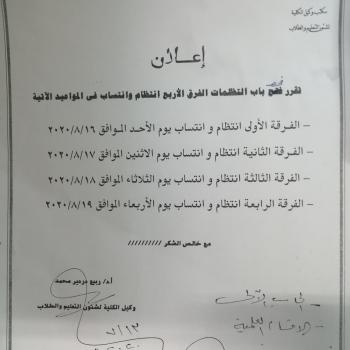 مكتب وكيل الكلية
لشئون التعليم والطلاب
إعـــلان
تقرر فتح باب التظلمات الفرق الأربع انتظام وانتساب فى المواعيد الآتية
– الفرقة الأولى انتظام و انتساب يوم الأحـد المـوافق ٢٠٢٠/٨/١٦
– الفرقة الثانية انتظام و انتساب يوم الاثنين الموافق ٢٠٢٠/٨/١٧
– الفرقة الثالثة انتظام و انتساب يوم الثلاثاء الموافق ٢٠٢٠/٨/١٨
– الفرقة الرابعة انتظام و انتساب يوم الأربعاء الموافق ٢٠٢٠/٨/١٩
مع خالص الشكر //////////
أ.د/ ربيع دردير محمد
وكيل الكلية لشئون التعليم والطلاب
الأقسام العلمية